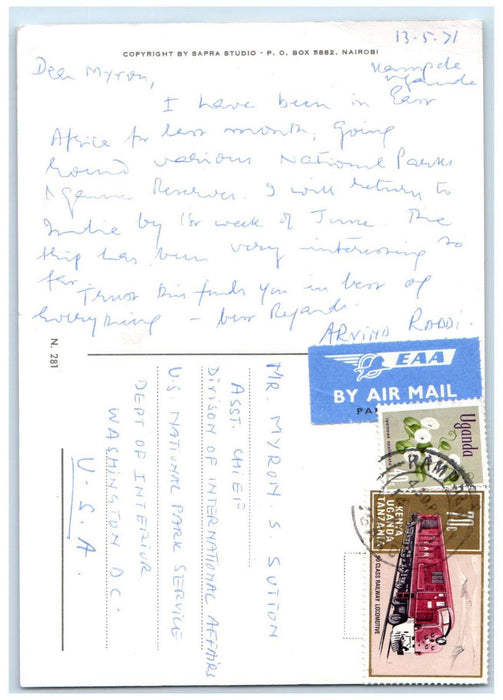 COPYRIGHT BY SAPRA STUDIO - P. O. BOX 5882, NAIROBI
13-5-71
Kampala
Uganda
Dear Myron,
I have been in East
Africa for last month, going
round various National Parks
& Game Reserves. I will return to
India by 1st week of June. The
trip has been very interesting so
far.
Trust this finds you in best of
everything - best Regards
ARVIND
N. 281
EAA
BY AIR MAIL
MR. MYRON S. SUTTON
ASST. CHIEF
DIVISON OF INTERNATIONAL AFFAIRS
U.S. NATIONAL PARK SERVICE
DEPT OF INTERIOR
WASHINGTON D.C.
U.S.A.
Uganda
KAMPALA
70c
KENYA
UGANDA
TANZANIA
CLASS RAILWAY LOCOMOTIVE